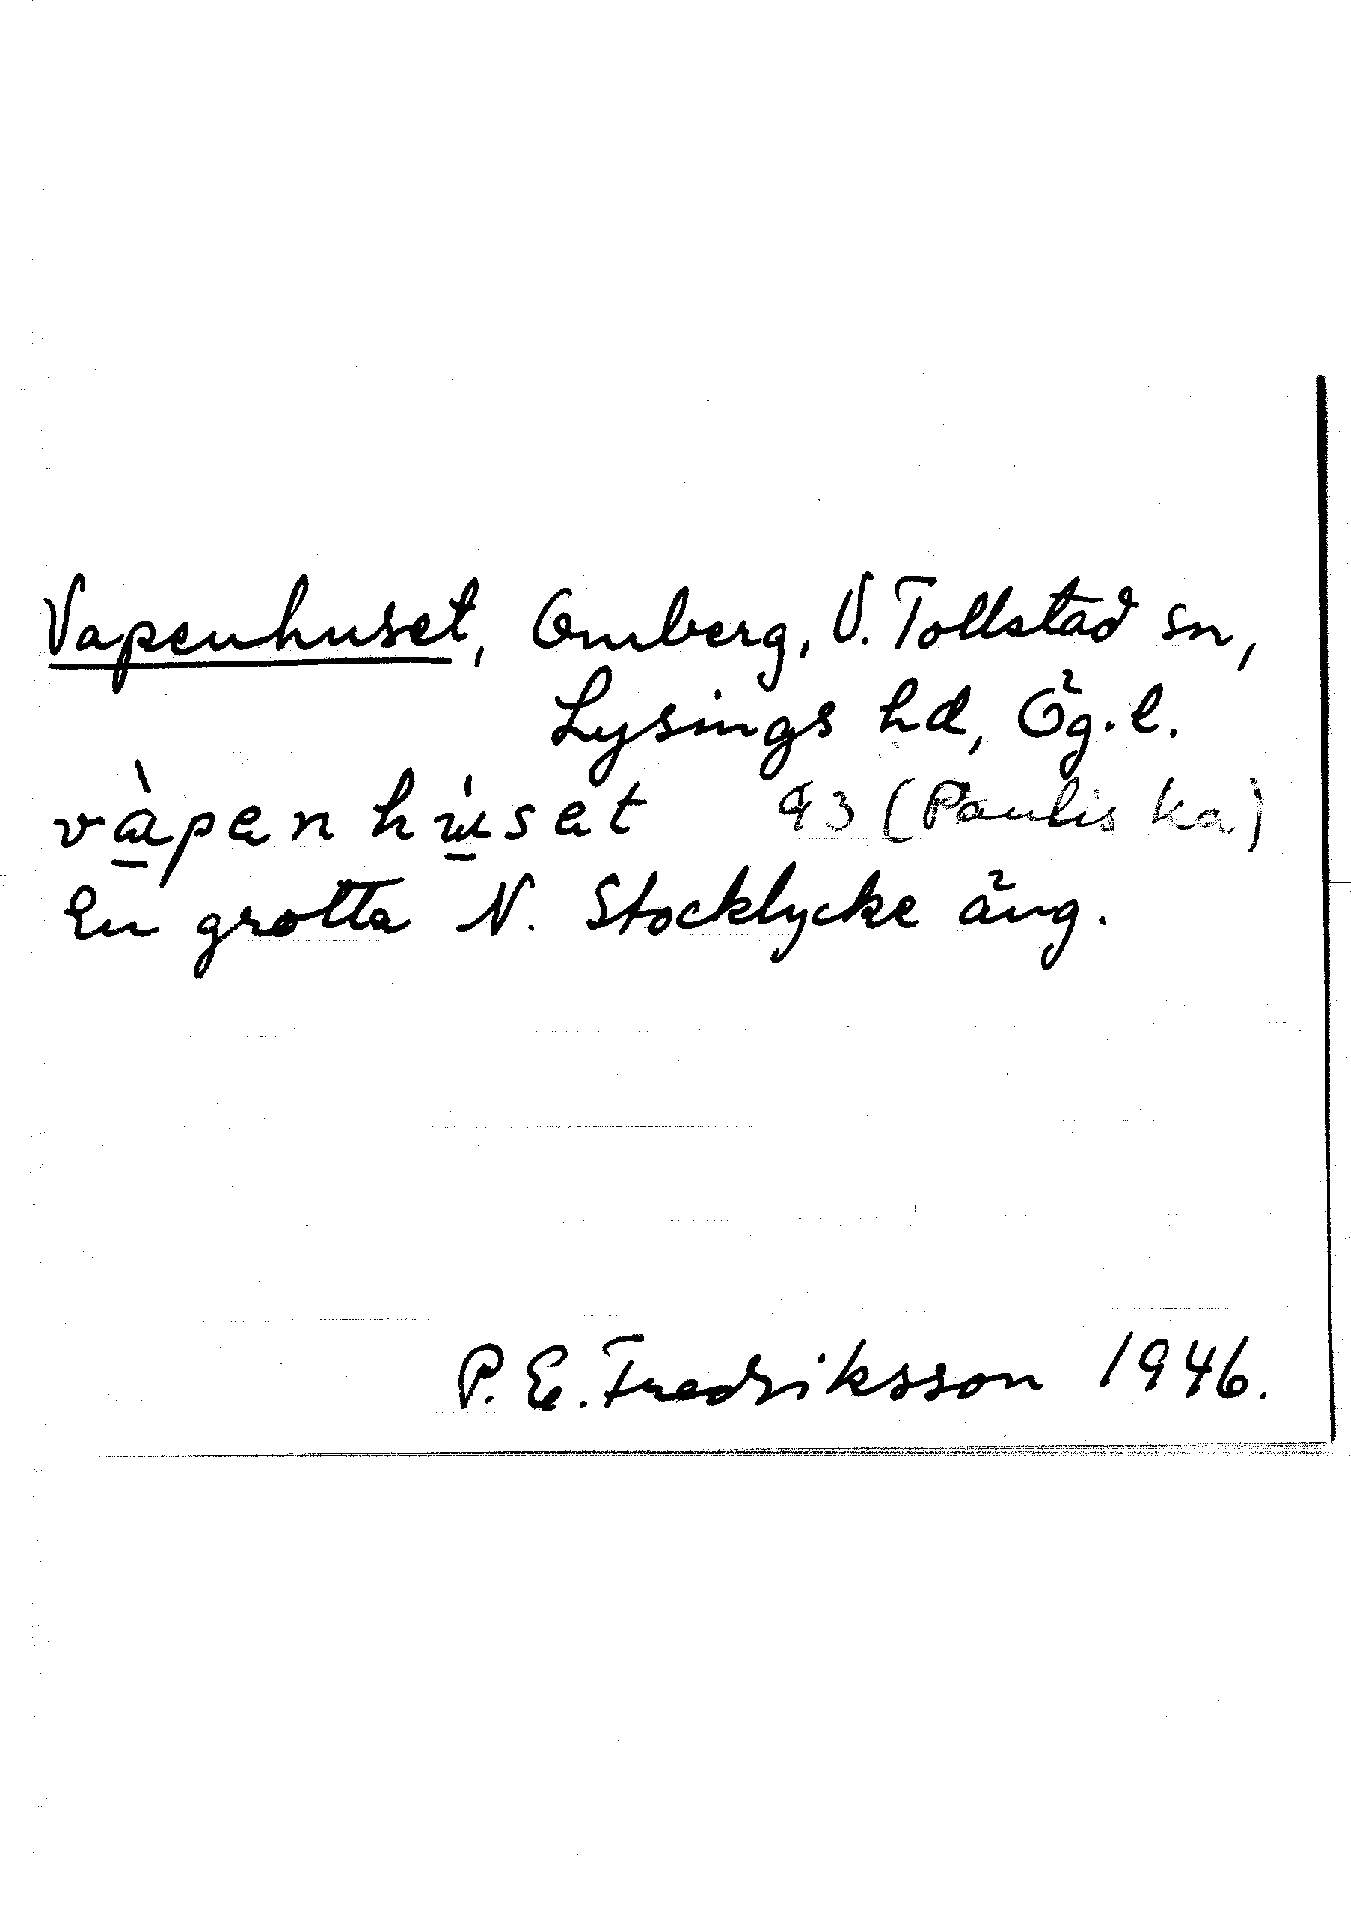 Vapenhuset, Omberg, V. Tollstad sn,
Lysings hd, Ög. l.
vàpenhúset 93 (Paulis ka)
En grotta N. Stocklycke äng.
P. E. Fredriksson 1946.